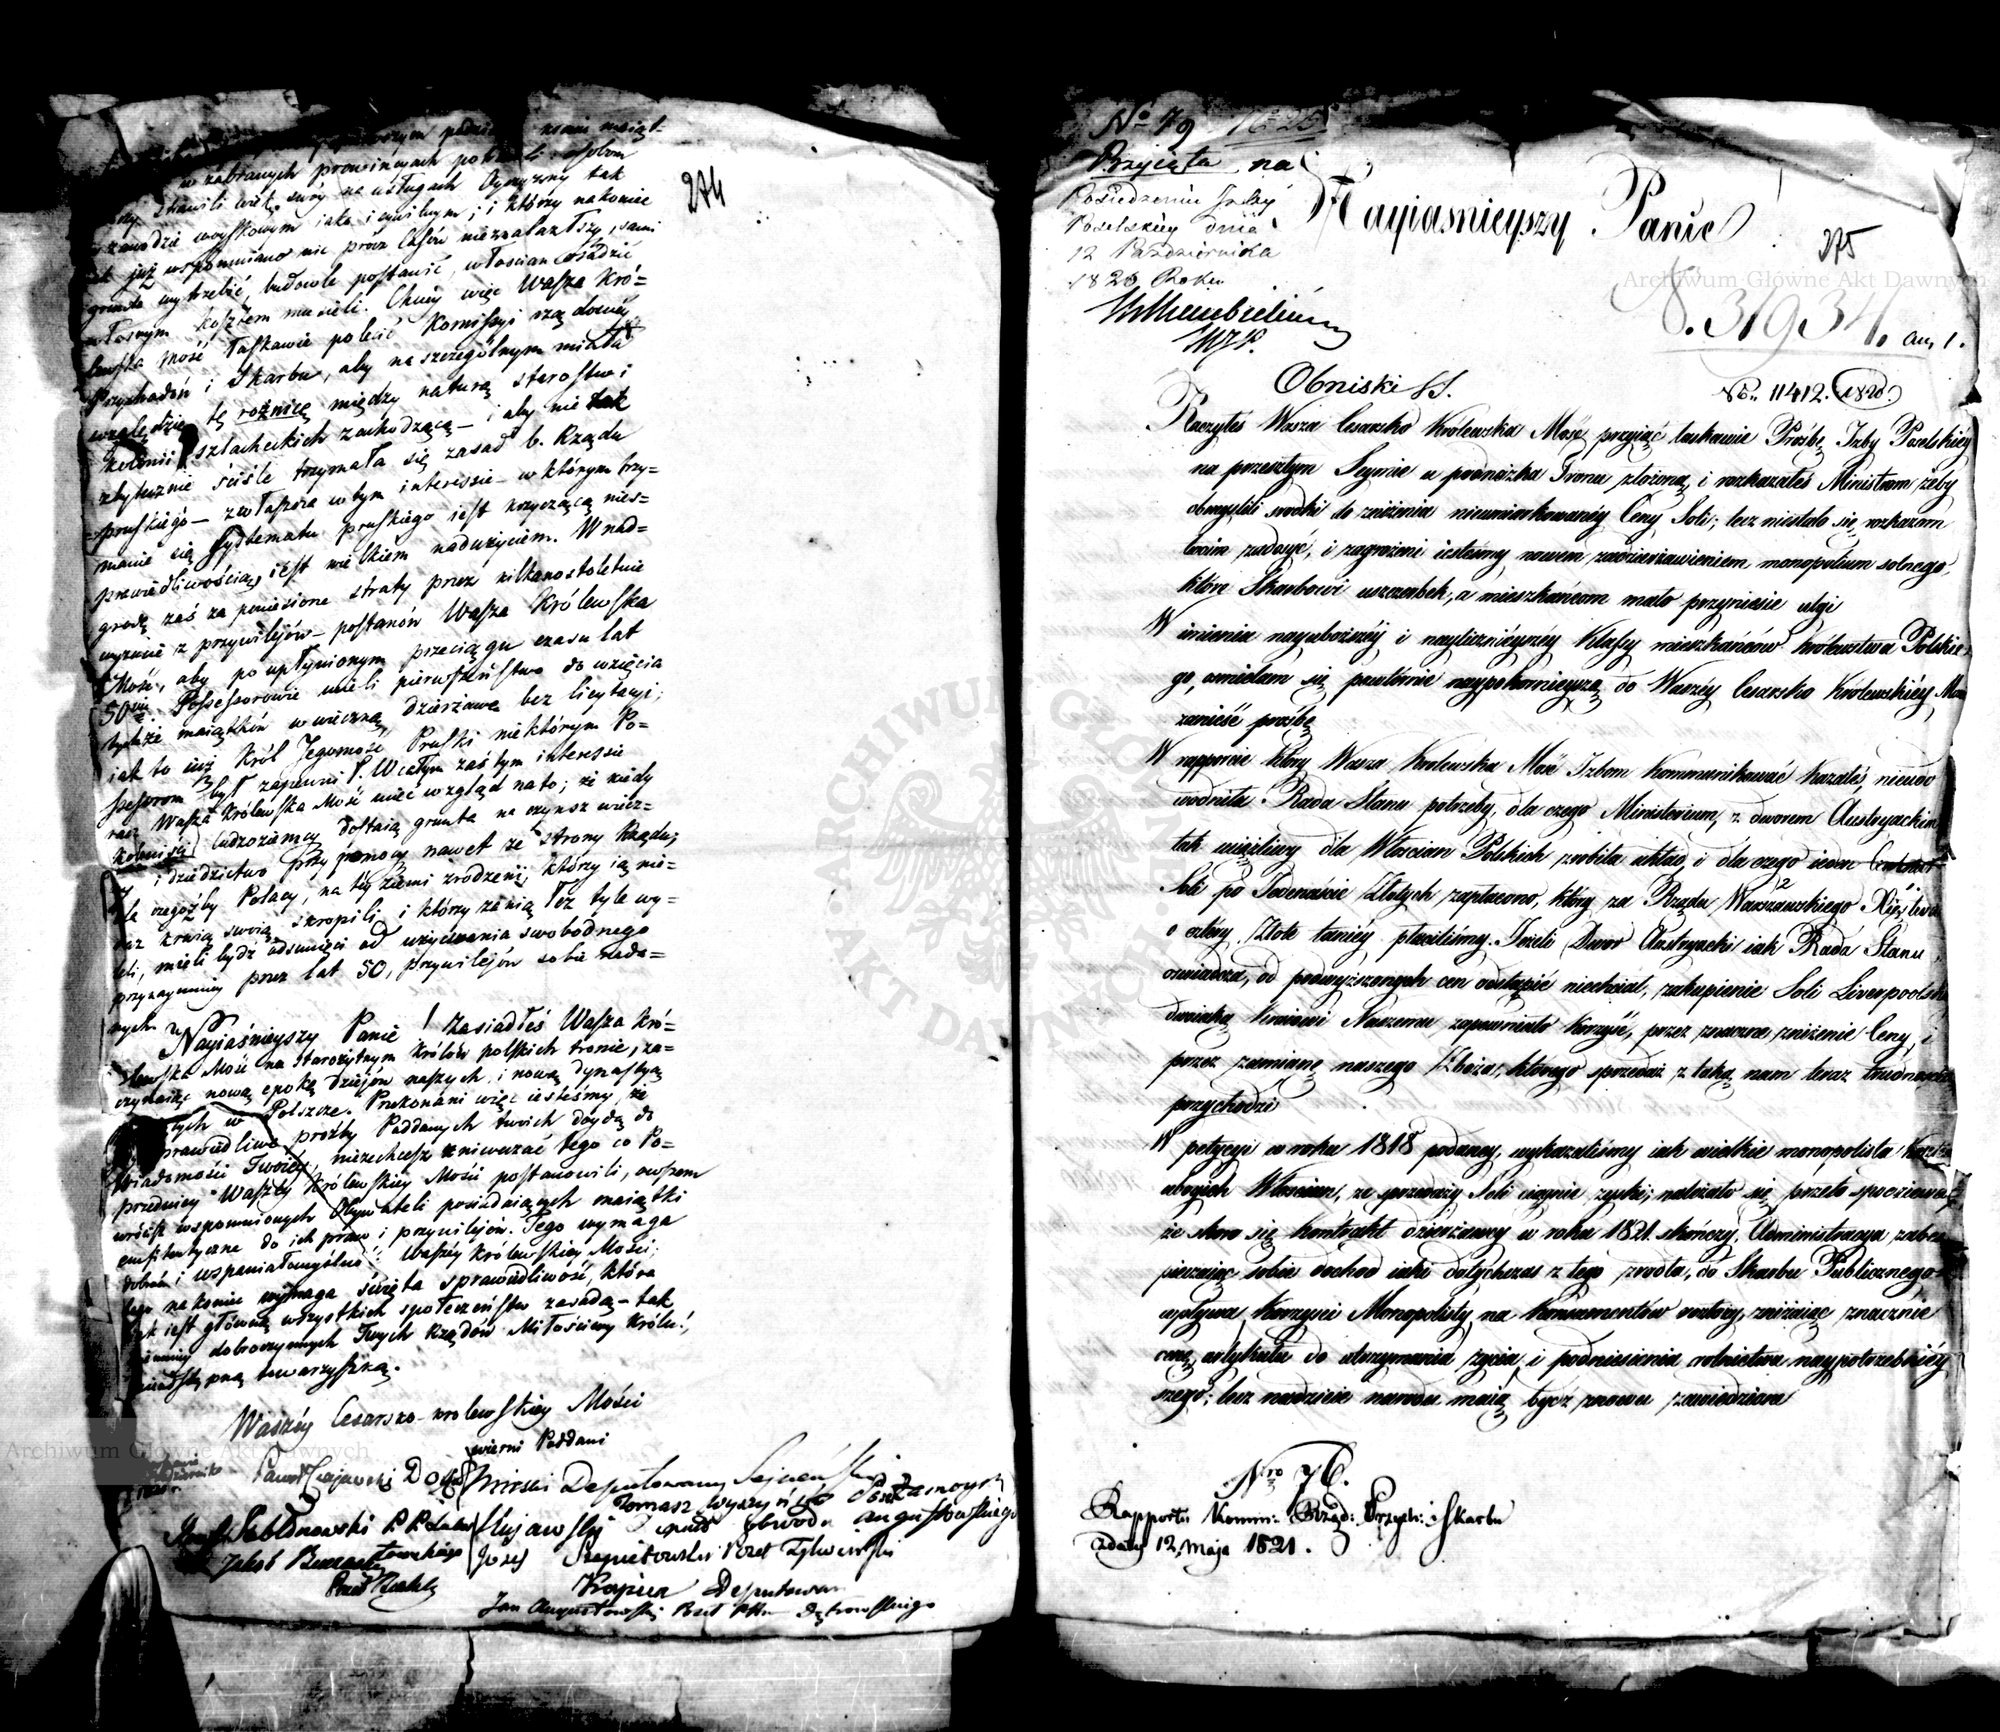 274
w zabranych prowincyach
strawili wiek swóy na usługach Oyczyzny tak
zawodzie woyskowym iako i cywilnym; i którzy nakoniec
już wspomniano nic prócz Lasów nieznalazłszy, sami
grunta wytrzebić, budowle postawić, włościan osadzić
własnym kosztem musieli. Chciey więc Wasza Kró=
lewska Mość łaskawie polecić Kommissyi rządowéy
Przychodów i Skarbu, aby na szczególnym miała
względzie tę rożnicę między naturą starostw i
kolonii szlacheckich zachodzącą – i aby nie tak
zbytecznie ściśle trzymała się zasad b. Rządu
pruskiego – zwłaszcza w tym interessie – w którym trzy=
manie się systematu pruskiego iest krzyczącą nies=
prawiedliwością, iest wielkiem nadużyciem. W nad=
grodę zaś za poniesione straty przez kilkanastoletnie
wyzucie z przywilejów – postanów Wasza Królewska
Mość, aby po upłynionym przeciągu czasu lat
50ciu Possessorowie mieli pierwszeństwo do wzięcia
tychże maiątków w wieczną dzierżawę bez licytacyi;
iak to iuż Król Jegomość Pruski niektórym Po=
ssessorom był zapewnił. W całym zaś tym interessie
racz Wasza Królewska Mość mieć wzgląd na to; że kiedy
koloniści cudzoziemcy dostaią grunta na czynsz wiecz=
i dziedzictwo przy pomocy nawet ze strony Rządu;
dla czegóżby Polacy, na téy ziemi zrodzeni; którzy ią nie=
raz krwią swoią skropili i którzy za nią też tyle wy=
mieli bydź odsunięci od używania swobodnego
przynaymniey przez lat 50, przywilejów sobie nada=
nych.
Nayiaśnieyszy Panie! Zasiadłeś Wasza Kró=
lewska Mość na starożytnym Królów polskich tronie, za=
czynaiąc nową epokę dzieiów naszych i nową dynastyą
w Polszcze. Przekonani więc iesteśmy, że
sprawiedliwe prośby Poddanych twoich doydą do
wiadomości Twoiéy, niezechcesz zniweczać tego co Po=
przednicy Waszéy Królewskiey Mości postanowili, owszem
wrócisz wspomnionych Obywateli posiadaiących maiątki
emfiteutyczne do ich praw i przywilejów. Tego wymaga
dobroć i wspaniałomyślność Waszéy Królewskiey Mości;
tego nakoniec wymaga święta sprawiedliwość, która
iak iest główną wszystkich społeczeństw zasadą – tak
dobroczynnych Twych Rządów Miłościwy Królu!
towarzyszką.
Waszéy Cesarsko-krolewskiey Mości
wierni Poddani
Deputowany
Tomasz
Augustowskiego
Kujawski
Józef Szepietowski Poseł
Deputowany
Jan Augustowski Poseł Pttu Dąbrowskiego
No 79
Przyięta na
Posiedzeniu Izby
Poselskiey dnia
12 Października
1820 Roku
Nayiasnieyszy Panie
275
N. 31934.
Obniski
No. 11412. 1820
Raczyłeś Wasza Cesarsko Królewska Mość, przyiąć łaskawie Prośbę Izby Poselskiey
na przeszłym Seymie u podnóżka Tronu złożoną, i rozkazałeś Ministrom żeby
obmyślili srodki do zniżenia nieumiarkowanéy Ceny Soli; lecz niestało się rozkazom
twoim zadosyć, i zagrożeni iesteśmy nowem zadzierżawieniem monopolium solnego,
które Skarbowi uszczerbek, a mieszkańcom mało przyniesie ulgi
W imieniu nayuboższéy i nayliczniéyszéy Klassy mieszkańców Królewstwa Polskie=
go, ośmielam się powtórnie naypokornieyszą do Waszéy Cesarsko Królewskiéy Mości
zanieść prośbę
W rapporcie który Wasza Krolewska Mość Izbom kommunikować kazałeś, nieudo
wodniła Rada Stanu potrzeby, dla czego Ministerium, z dworem Austryackim
tak uciążliwy dla Włoscian Polskich zrobiła układ, i dla czego ieden Centnar
Soli po Jedenaście Złotych zapłacono, który za Rządu Warszawskiego Xięstwa
o cztéry Złote taniéy płaciliśmy. Jeżeli Dwor Austryacki iak Rada Stanu
oswiadcza, od podwyższonych cen odstąpić niechciał, zakupienie Soli Liverpoolskiey
Kraiowi Naszemu zapewniało Korzyść, przez znaczne zniżenie Ceny, i
przez zamianę naszego Zboża, którego sprzedaż z taką nam teraz trudnością
przychodzi
W petycyi w roku 1818 podaney, wykazaliśmy iak wielkie monopolista Kosztem
ubogich Włoscian, ze sprzedaży Soli ciągnie zyski; należało się przeto spodziewać,
że skoro się kontrakt dzierżawy w roku 1821 skończy, Administracya zabez=
pieczaiąc sobie dochod iaki dotychczas z tego zrodła, do Skarbu Publicznego
wpływa, Korzysci Monopolisty na Konsumentów zwróci, zniżaiąc znacznie
cenę artykułu do utrzymania życia, i podniesienia rolnictwa naypotrzebniéy
szego; lecz nadzieie narodu maią być znowu zawiedzione
Nro 76.
Rapportu Komm: Rząd: Przych: i Skarbu
zdany 12 Maja 1821.
Archiwum Główne Akt Dawnych
Archiwum Główne Akt Dawnych
ARCHIWUM GŁÓWNE AKT DAWNYCH